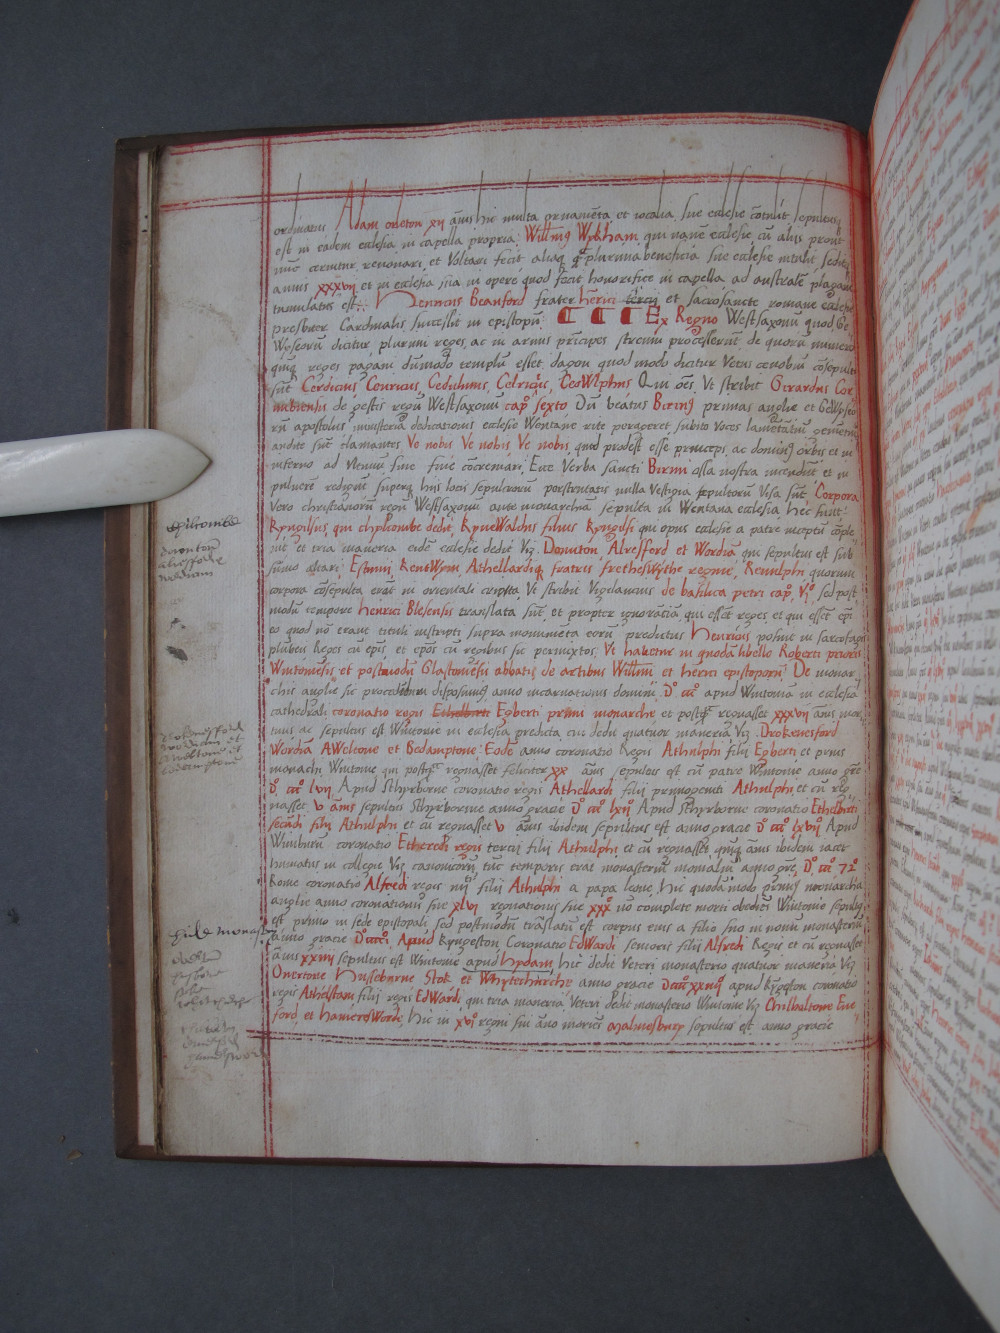 ordinatus Adam orleton xij ãnis hic multa ornamẽta et iocalia sue ecclesie cõtulit sepultus
est in eadem ecclesia in capella propria. Willm̃us Wykham qui nauẽ ecclesie cũ aliis prout
nunc cernitur renouari et Voltari fecit aliaq̃ plurima beneficia sue ecclesie intulit sedit
annis xxxvij et in ecclesia sua in opere quod fecit honorifice in capella ad australẽ plagam
tumulatus est. Henricus Beauford frater henrici tercij et sacrosancte romane ecclesie
presbiter Cardinalis successit in episcopũ. Ex Regno Westsaxonũ quod Ge
Wyseorũ dicitur, plurimi reges ac in armis prĩcipes strenui processerunt de quorũ numero
quinq̃ reges pagani dũmodo templũ esset dagon quod modo dicitur Vetus cœnobiũ cõsepulti
sũt Cerdicius, Cenricus, Cedulinus, Celricus, CeoWlphus Qui oẽs Vt scribit Girardus Cor
nubiensis de gestis regũ Westsaxonũ cap̊ sexto Dũ beatus Birinus primas anglie et GeWyseo
rũ apostolus ministeria dedicationis ecclesie Wentane rite perageret subito voces lamẽtãtiũ gementiũ
audite sũt clamantes Ve nobis Ve nobis, Ve nobis, quod prodest esse principes ac dominos orbis et in
inferno ad Vlenum sine fine cõcremari, Ecce Verba sancti Birini ossa nostra incendũt et in
puluerẽ redigũt superq̃ hijs locis sepulcrorũ perscrutatis nulla Vestigia sepultorũ Visa sũt Corpora
Vero christianorũ regũ Westsaxonũ ante monarchiã sepulta in Wentana ecclesia hec sunt
Kyngilsus, qui chylcombe dedit, KyneWalchs filius Kyngilsi qui opus ecclesie a patre inceptũ cõple
uit et tria maneria eidẽ ecclesie dedit Viz. Dounton Alresford et Wordiã qui sepultus est sub
sũmo altari, Estuini KentWyni, Athellardiq̃ fratris frethesWythe regine, Kenulphi quorum
corpora cõsepulta erãt in orientali cripta Vt scribit Vigelancius de basilica petri cap̊ Vj̊ sed post
modũ tempore henrici Blesensis translata sũt, et propter ignorãciã qui essẽt reges et qui essẽt ep̃i
eo quod nõ erant tituli inscripti supra monumẽta eorũ predictus Henricus posuit in sarcofagis
plubeis Reges cũ ep̃is, et ep̃os cũ regibus sic permixtos Vt habetur in quodã libello Roberti prioris
Wintoniẽsis et postmodũ Glastoniẽsis abbatis de actibus Willmi et henrici episcoporũ. De monar
chis anglie sic procedere disposuimus anno incarnationis domini D̊ ccc̊ apud Wintoniã in ecclesia
cathedrali coronatio regis Ethelberti Egberti primi monarche et postq̃ regnasset xxxvij ãnis mor
tuus ac sepultus est Wintonie in ecclesia predicta cui dedit quatuor maneria Viz. Drokenesford
Wordhã AWelcone et Bedamptone. Eodẽ anno coronatio Regis Athulphi filij Egberti et prius
monachi Wintonie qui postq̃ regnasset feliciter xx ãnis sepultus est cũ patre Wintonie anno gr̃e
D̊ ccc̊ lvij Apud Sthyrborne coronatio regis Athellardi filij primogeniti Athulphi et cũ reg
nasset v ãnis sepultus Sthyrborne anno gracie D̊ ccc̊ lxij̊ Apud Sthyrborne coronatio Ethelbirti
secũdi filij Athulphi et cũ regnasset v ãnis ibidem sepultus est anno gracie D̊ ccc̊ lxvij̊ Apud
Winburn coronatio Etheredi regis tercij filij Athulphi et cũ regnasset quinq̃ ãnis ibidem iacet
humatus in collegio Viz canonicorũ tũc temporis erat monasteriũ monialiũ anno gr̃e D̊ ccc̊ 72̊
Rome coronatio Alfredi regis iiij filij Athulphi a papa leone, hic quodã modo primus monarcha
anglie anno coronationis sue xlvj regnationis sue xxx̊ nõ complete morti obediẽs Wintonie sepultus
est primo in sede episcopali sed postmodũ trãslatũ est corpus eius a filio suo in nouũ monasteriũ
anno gracie D̊ cccc̊ Apud Kyngeston Coronatio EdWardi senioris filij Alfredi Regis et cũ regnasset
ãnis xxiiij sepultus est Wintonie apud hydam hic dedit Veteri monasterio quatuor maneria Viz
Overtone Husseburne Stok et Whytchirche anno gracie Dcccc̊ xxiiij̊ apud Kyngeston coronatio
regis Athelstani filij regis EdWardi, qui tria maneria Veteri dedit monasterio Wintonie Viz Chilbaltone Ene
ford, et hameresWorde, hic in xvj̊ regni sui ãno moriẽs malmesbury sepultus est anno gracie
chilcombe
dounton
alresforde
wordiam
drokenesford
wordiam et
awelton et
bedamptone
hide monastery